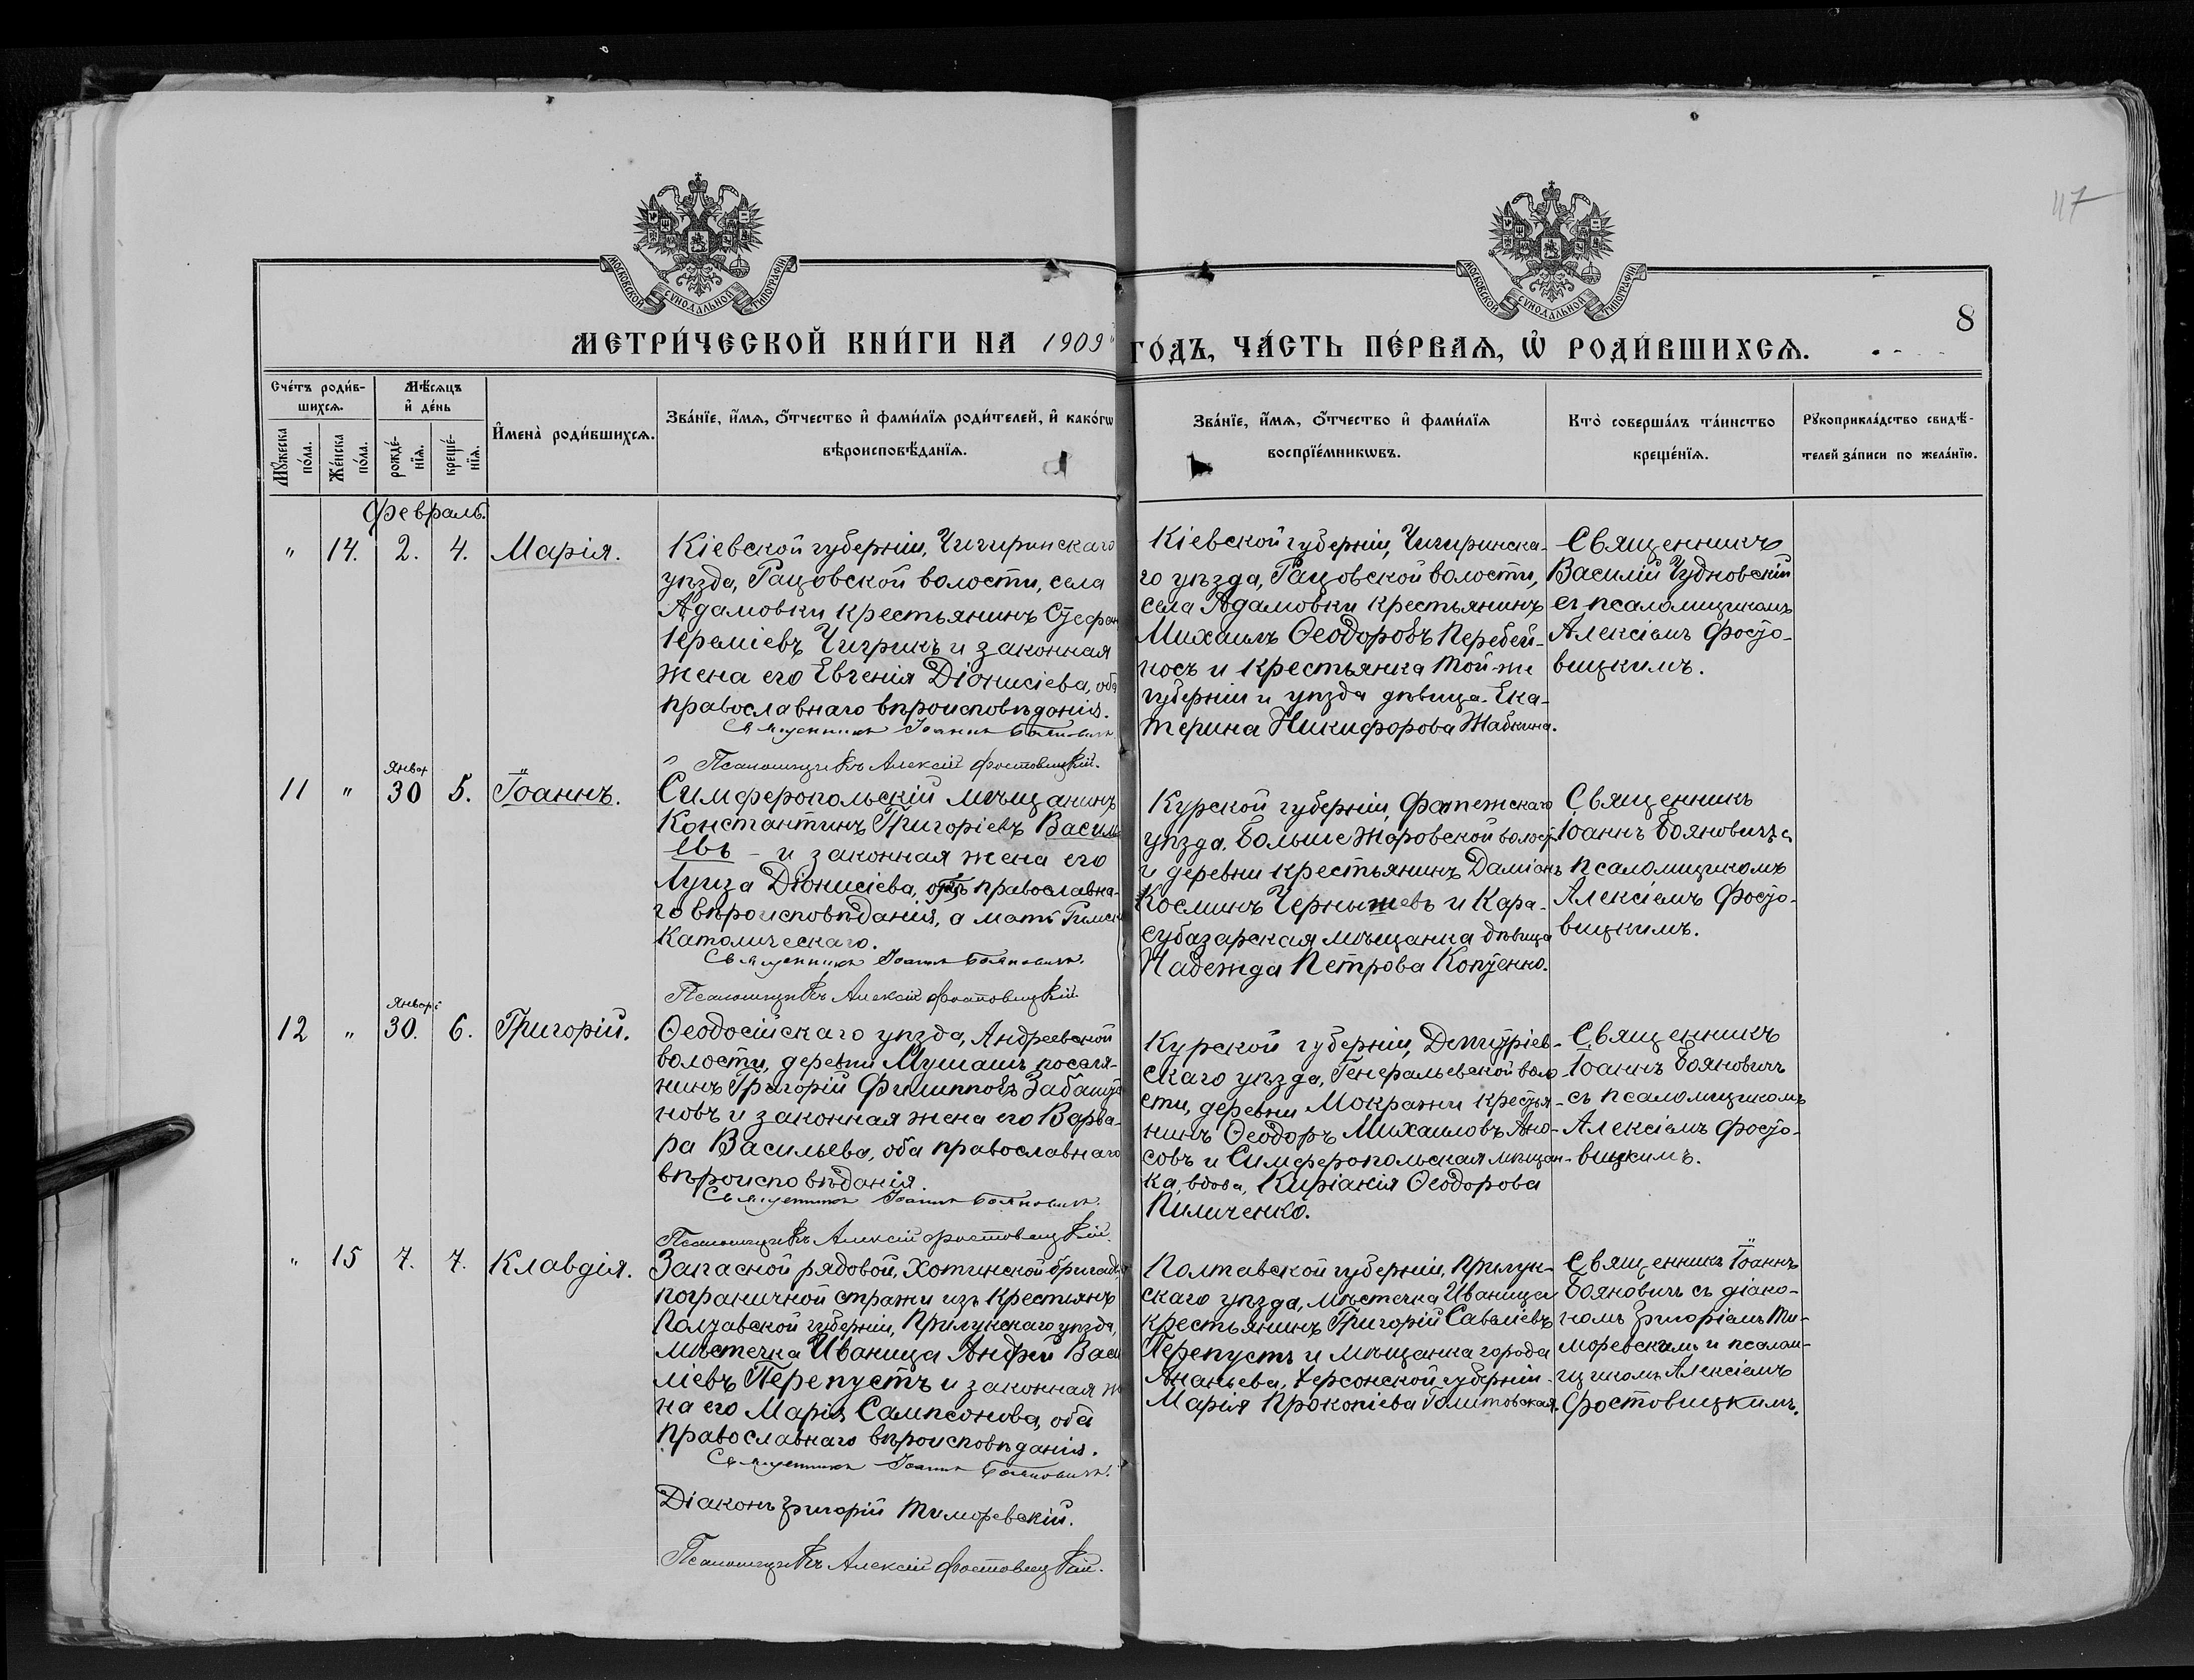 47
МОСКОВСКОЙ СУНОДАЛЬНОЙ ТИПОГРАФІИ
МОСКОВСКОЙ СУНОДАЛЬНОЙ ТИПОГРАФІИ
8
МЕТРИ́ЧЕСКОЙ КНИ́ГИ НА 1909
ГО́ДЪ, ЧА́СТЬ ПЕ́РВАѦ, Ѡ҆ РОДИ́ВШИХСѦ.
Сче́тъ роди́в-
шихсѧ.
Мꙋ́жеска по́ла.
Же́нска по́ла.
Мѣ́сѧцъ
и҆ де́нь
рожде́-
нїѧ.
креще́-
нїѧ.
И҆мена̀ роди́вшихсѧ.
Зва́нїе, и҆́мѧ, ѻ҆́тчество и҆ фами́лїѧ роди́телей, и҆ како́гѡ
вѣроисповѣ́данїѧ.
Зва́нїе, и҆́мѧ, ѻ҆́тчество и҆ фами́лїѧ
воспрїе́мникѡвъ.
Кто̀ соверша́лъ та́инство
креще́нїѧ.
Рꙋкоприкла́дство свидѣ́-
телей за́писи по жела́нїю.
Февраль.
" 14. 2. 4. Марія.
Кіевской губерніи, Чигиринскаго
уѣзда, Рацовской волости, села
Адамовки крестьянинъ Стефан
Іереміевъ Чигринъ и законная
жена его Евгенія Діонисіева, оба
православнаго вѣроисповѣданія.
Священникъ Іоаннъ Бояновичъ.
Псаломщикъ Алексій Фостовицкій.
Кіевской губерніи, Чигиринска-
го уѣзда, Рацовской волости,
села Адамовки крестьянинъ
Михаилъ Ѳеодоровъ Перебей-
носъ и крестьянка той-же
губерніи и уѣзда дѣвица Ека-
терина Никифорова Жабкина.
Священникъ
Василій Чудновскій
съ псаломщикомъ
Алексіемъ Фосто-
вицкимъ.
11 " Январ 30 5. Іоаннъ.
Симферопольскій мѣщанинъ
Константинъ Григоріевъ Василь
евъ - и законная жена его
Луиза Діонисіева, отецъ православна-
го вѣроисповѣданія, а мать Римск
Католическаго.
Священникъ Іоаннъ Бояновичъ.
Псаломщикъ Алексій Фостовицкій.
Курской губерніи, Фатежскаго
уѣзда, Больше Жаровской волост
и деревни крестьянинъ Даміанъ
Косминъ Чернышевъ и Кара-
субазарская мѣщанка дѣвица
Надежда Петрова
Священникъ
Іоаннъ Бояновичъ с
псаломщикомъ
Алексіемъ Фосто-
вицкимъ.
12 " Январѣ 30. 6. Григорій.
Ѳеодосійскаго уѣзда, Андреевской
волости, деревни поселя-
нинъ Григорій Филипповъ
новъ и законная жена его Варва-
ра Васильева, оба православнаго
вѣроисповѣданія.
Священникъ Іоаннъ Бояновичъ.
Псаломщикъ Алексій Фостовицкій.
Курской губерніи, Дмитріев-
скаго уѣзда, Генеральевской воло
сти, деревни Мокражи крестья-
нинъ Ѳеодоръ Михаиловъ Ано-
совъ и Симферопольская мѣщан-
ка, вдова, Киріакія Ѳеодорова
Пиличенко.
Священникъ
Іоаннъ Бояновичъ
съ псаломщикомъ
Алексіемъ Фосто-
вицкимъ.
" 15 7. 7. Клавдія.
Запасной рядовой, Хотинской бригады
пограничной стражи изъ крестьянъ
Полтавской губерніи, Прилукскаго уѣзда,
мѣстечка Иваница Андрей Васи
ліевъ Перепустъ и законная же
на его Марія Сампсонова, оба
православнаго вѣроисповѣданія.
Священникъ Іоаннъ Бояновичъ.
Діаконъ Григорій Тиморевскій.
Псаломщикъ Алексій Фостовицкій.
Полтавской губерніи, Прилук-
скаго уѣзда, мѣстечка Иваница
крестьянинъ Григорій Савеліевъ
Перепустъ и мѣщанка города
Ананьева, Херсонской губерніи
Марія Прокопіева
Священникъ Іоаннъ
Бояновичъ съ діако-
номъ Григоріемъ Ти-
моревскимъ и псалом-
щикомъ Алексіемъ
Фостовицкимъ.